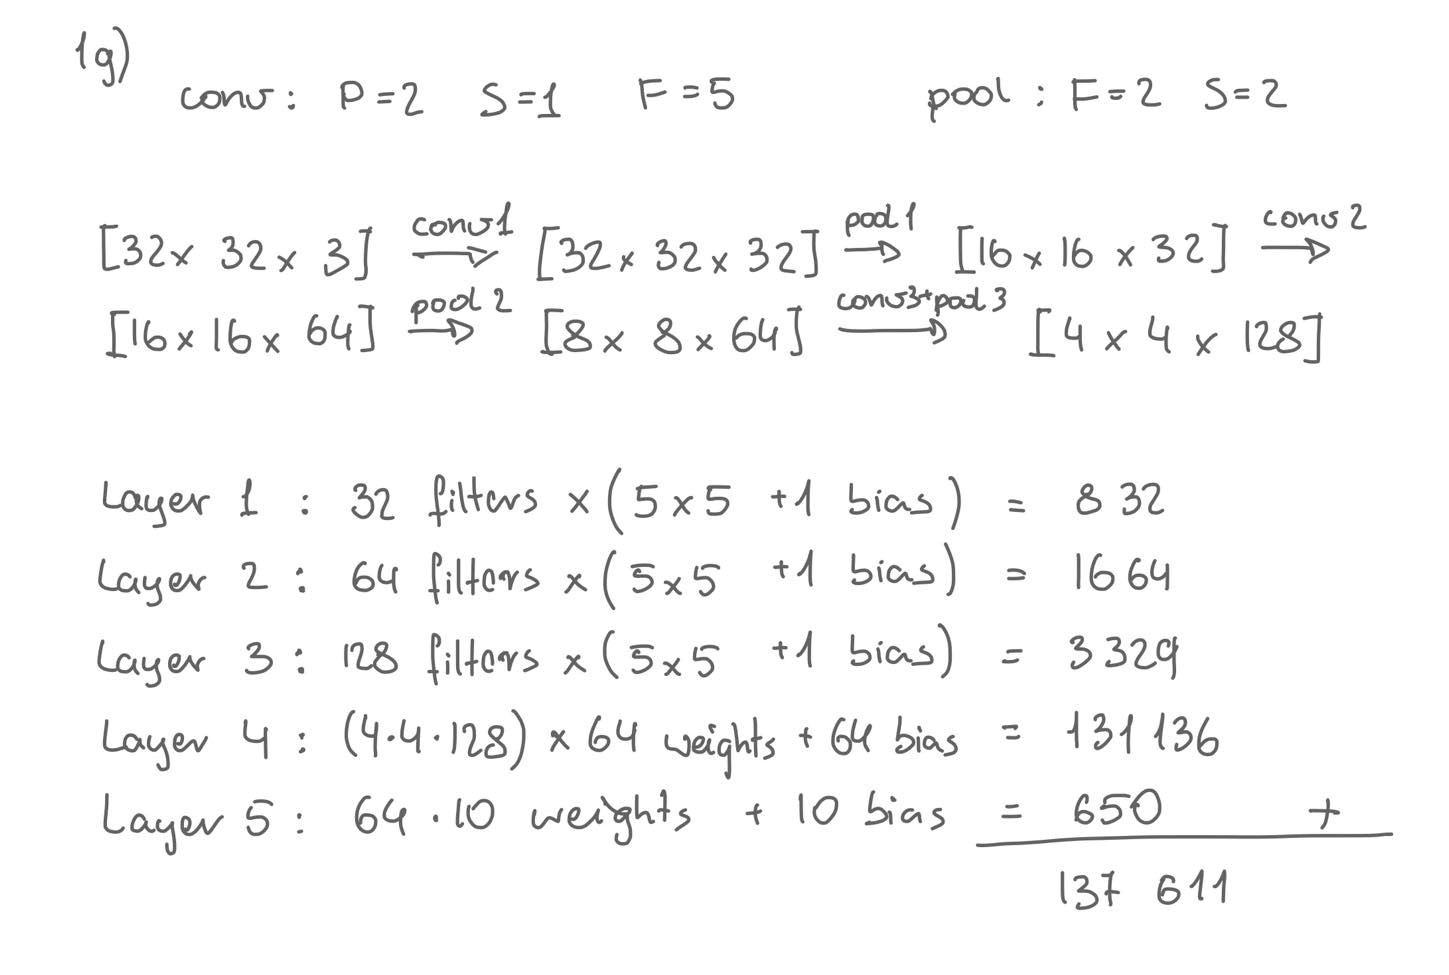 1g)
conv : P=2 S=1 F=5 pool : F=2 S=2
[32x 32 x 3] conv1→ [32 x 32 x 32] pool 1→ [16 x 16 x 32] conv 2→
[16 x 16 x 64] pool 2→ [8 x 8 x 64] conv3+pool 3→ [4 x 4 x 128]
Layer 1 : 32 filters x (5x5 +1 bias) = 832
Layer 2 : 64 filters x (5x5 +1 bias) = 1664
Layer 3 : 128 filters x (5x5 +1 bias) = 3329
Layer 4 : (4·4·128) x 64 weights + 64 bias = 131 136
Layer 5 : 64 · 10 weights + 10 bias = 650 +
137 611